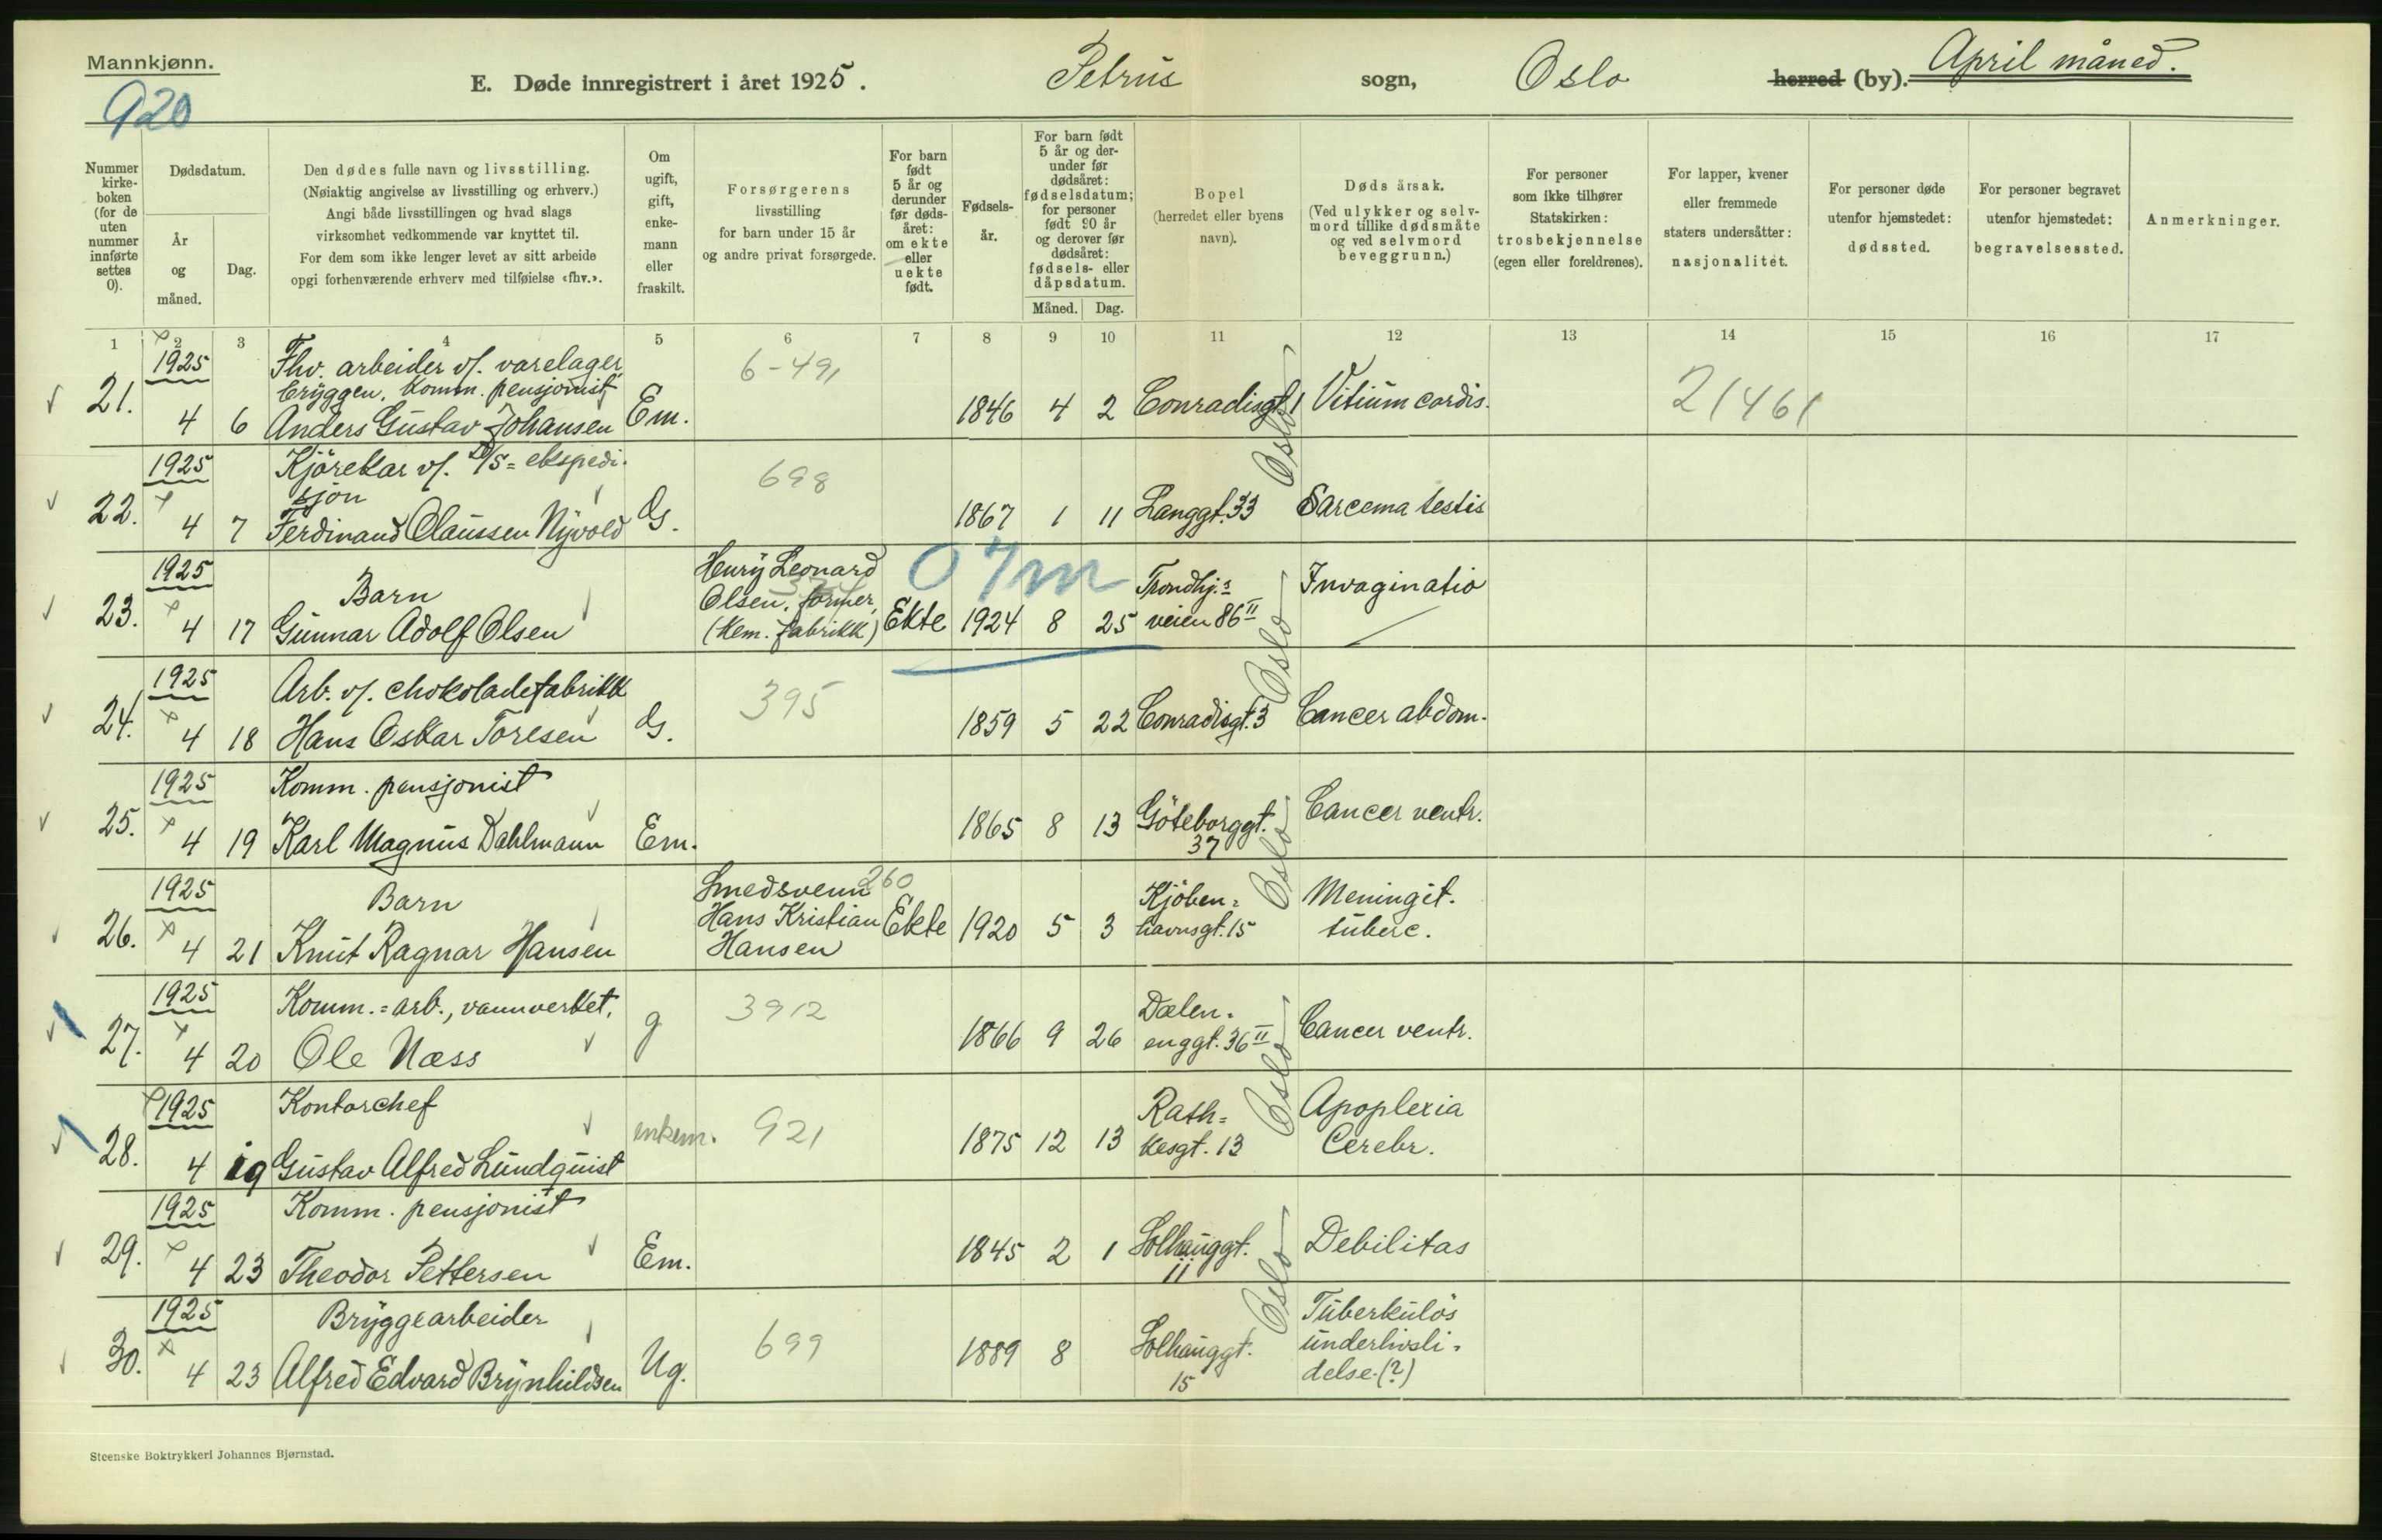 Mannkjønn.
920
E. Døde innregistrert i året 1925. Petrus sogn, Oslo herred (by). April måned.
Nummer kirke-boken (for de uten nummer innførte settes 0).
Dødsdatum.
År og måned.
Dag.
Den dødes fulle navn og livsstilling.
(Nøiaktig angivelse av livsstilling og erhverv.)
Angi både livsstillingen og hvad slags
virksomhet vedkommende var knyttet til.
For dem som ikke lenger levet av sitt arbeide
opgi forhenværende erhverv med tilføielse «fhv.».
Om ugift, gift, enke-mann eller fraskilt.
Forsørgerens
livsstilling
for barn under 15 år
og andre privat forsørgede.
For barn født 5 år og derunder før døds-året: om ekte eller uekte født.
Fødsels-år.
For barn født 5 år og der-under før dødsåret: fødselsdatum; for personer født 90 år og derover før dødsåret: fødsels- eller dåpsdatum.
Måned. Dag.
Bopel
(herredet eller byens
navn).
Døds årsak.
(Ved ulykker og selv-
mord tillike dødsmåte
og ved selvmord
beveggrunn.)
For personer
som ikke tilhører
Statskirken:
trosbekjennelse
(egen eller foreldrenes).
For lapper, kvener
eller fremmede
staters undersåtter:
nasjonalitet.
For personer døde
utenfor hjemstedet:
dødssted.
For personer begravet
utenfor hjemstedet:
begravelsessted.
Anmerkninger.
1 2 3 4 5 6 7 8 9 10 11 12 13 14 15 16 17
1925 Fhv. arbeider v/. varelager, 6-491
bryggen. Komm. pensjonist,
21. 4 6 Anders Gustav Johansen Em. 1846 4 2 Conradisgt. 1 Vitium cordis. 21461
Oslo
1925 Kjørekar v/. D/S= ekspedi-
sjon 698
22. 4 7 Ferdinand Claussen Nyvold G. 1867 1 11 Langgt. 33 Sarcema testis
1925 Barn Henry Leonard 07m Trondhj.s Invaginatio
Olsen, former,
23. 4 17 Gunnar Adolf Olsen (Kem. fabrikk) Ekte 1924 8 25 veien 86 II
Oslo
1925 Arb. v/. chokoladefabrikk 395
24. 4 18 Hans Oskar Toresen G. 1859 5 22 Conradisgt. 3 Cancer abdom.
1925 Komm. pensjonist
25. 4 19 Karl Magnus Dahlmann Em. 1865 8 13 Göteborggt. Cancer ventr.
37
Oslo
1925 Barn Smedsvenn 260 Kjöben= Meningit.
26. 4 21 Knut Ragnar Hansen Hans Kristian Ekte 1920 5 3 havnsgt. 15 tuberc.
Hansen
1925 Komm.=arb., vannverket. 3912 Dælen-
27. 4 20 Ole Næss g 1866 9 26 enggt. 36 II Cancer ventr.
Oslo
1925 Kontorchef Rath= Apoplexia
28. 4 19 Gustav Alfred Lundquist enkem. 921 1875 12 13 kesgt. 13 Cerebr.
1925 Komm. pensjonist
29. 4 23 Theodor Pettersen Em. 1845 2 1 Solhauggt. Debilitas
11
Oslo
1925 Bryggearbeider Tuberkuløs
30. 4 23 Alfred Edvard Brynhildsen Ug. 699 1889 8 Solhauggt. underlivsli-
15 delse.(?)
Steenske Boktrykkeri Johannes Bjørnstad.